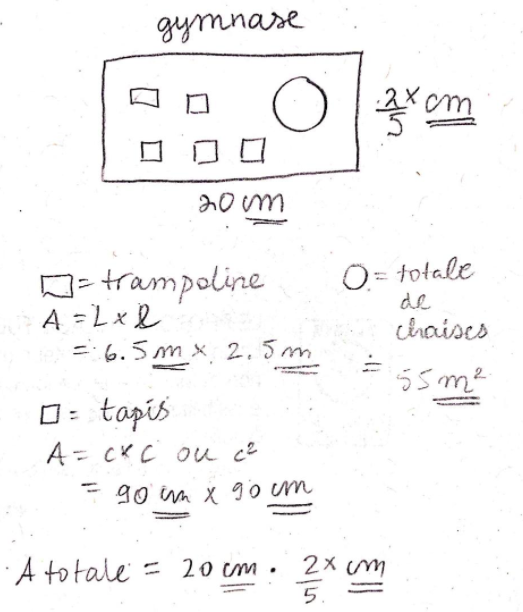 gymnase
2x/5 cm
20 cm
▭ = trampoline
A = L x l
= 6.5 m x 2.5 m
O = totale
de
chaises
= 55 m²
□ = tapis
A = c x c ou c²
= 90 cm x 90 cm
A totale = 20 cm . 2x/5 cm